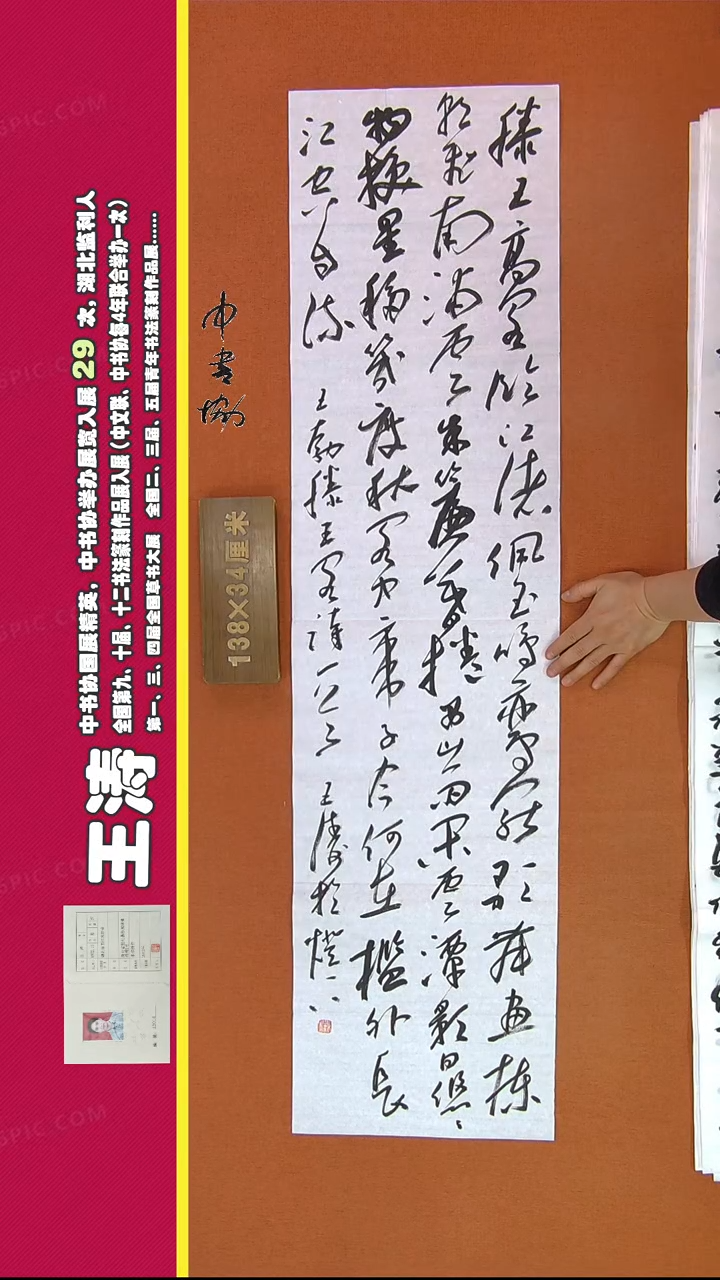 王涛
中书协国展精英，中书协举办展览入展29次，湖北监利人
全国第九、十届、十二书法篆刻作品展入展（中文联、中书协每4年联合举办一次）
第一、三、四届全国草书大展 全国二、三届、五届青年书法篆刻作品展……
中書協
138×34厘米
滕王高阁临江渚佩玉鳴鸾罢歌舞画棟
朝飛南浦云朱簾暮捲西山雨闲云潭影日悠悠
物换星移幾度秋阁中帝子今何在檻外長
江空自流 王勃滕王阁诗一首 王涛於